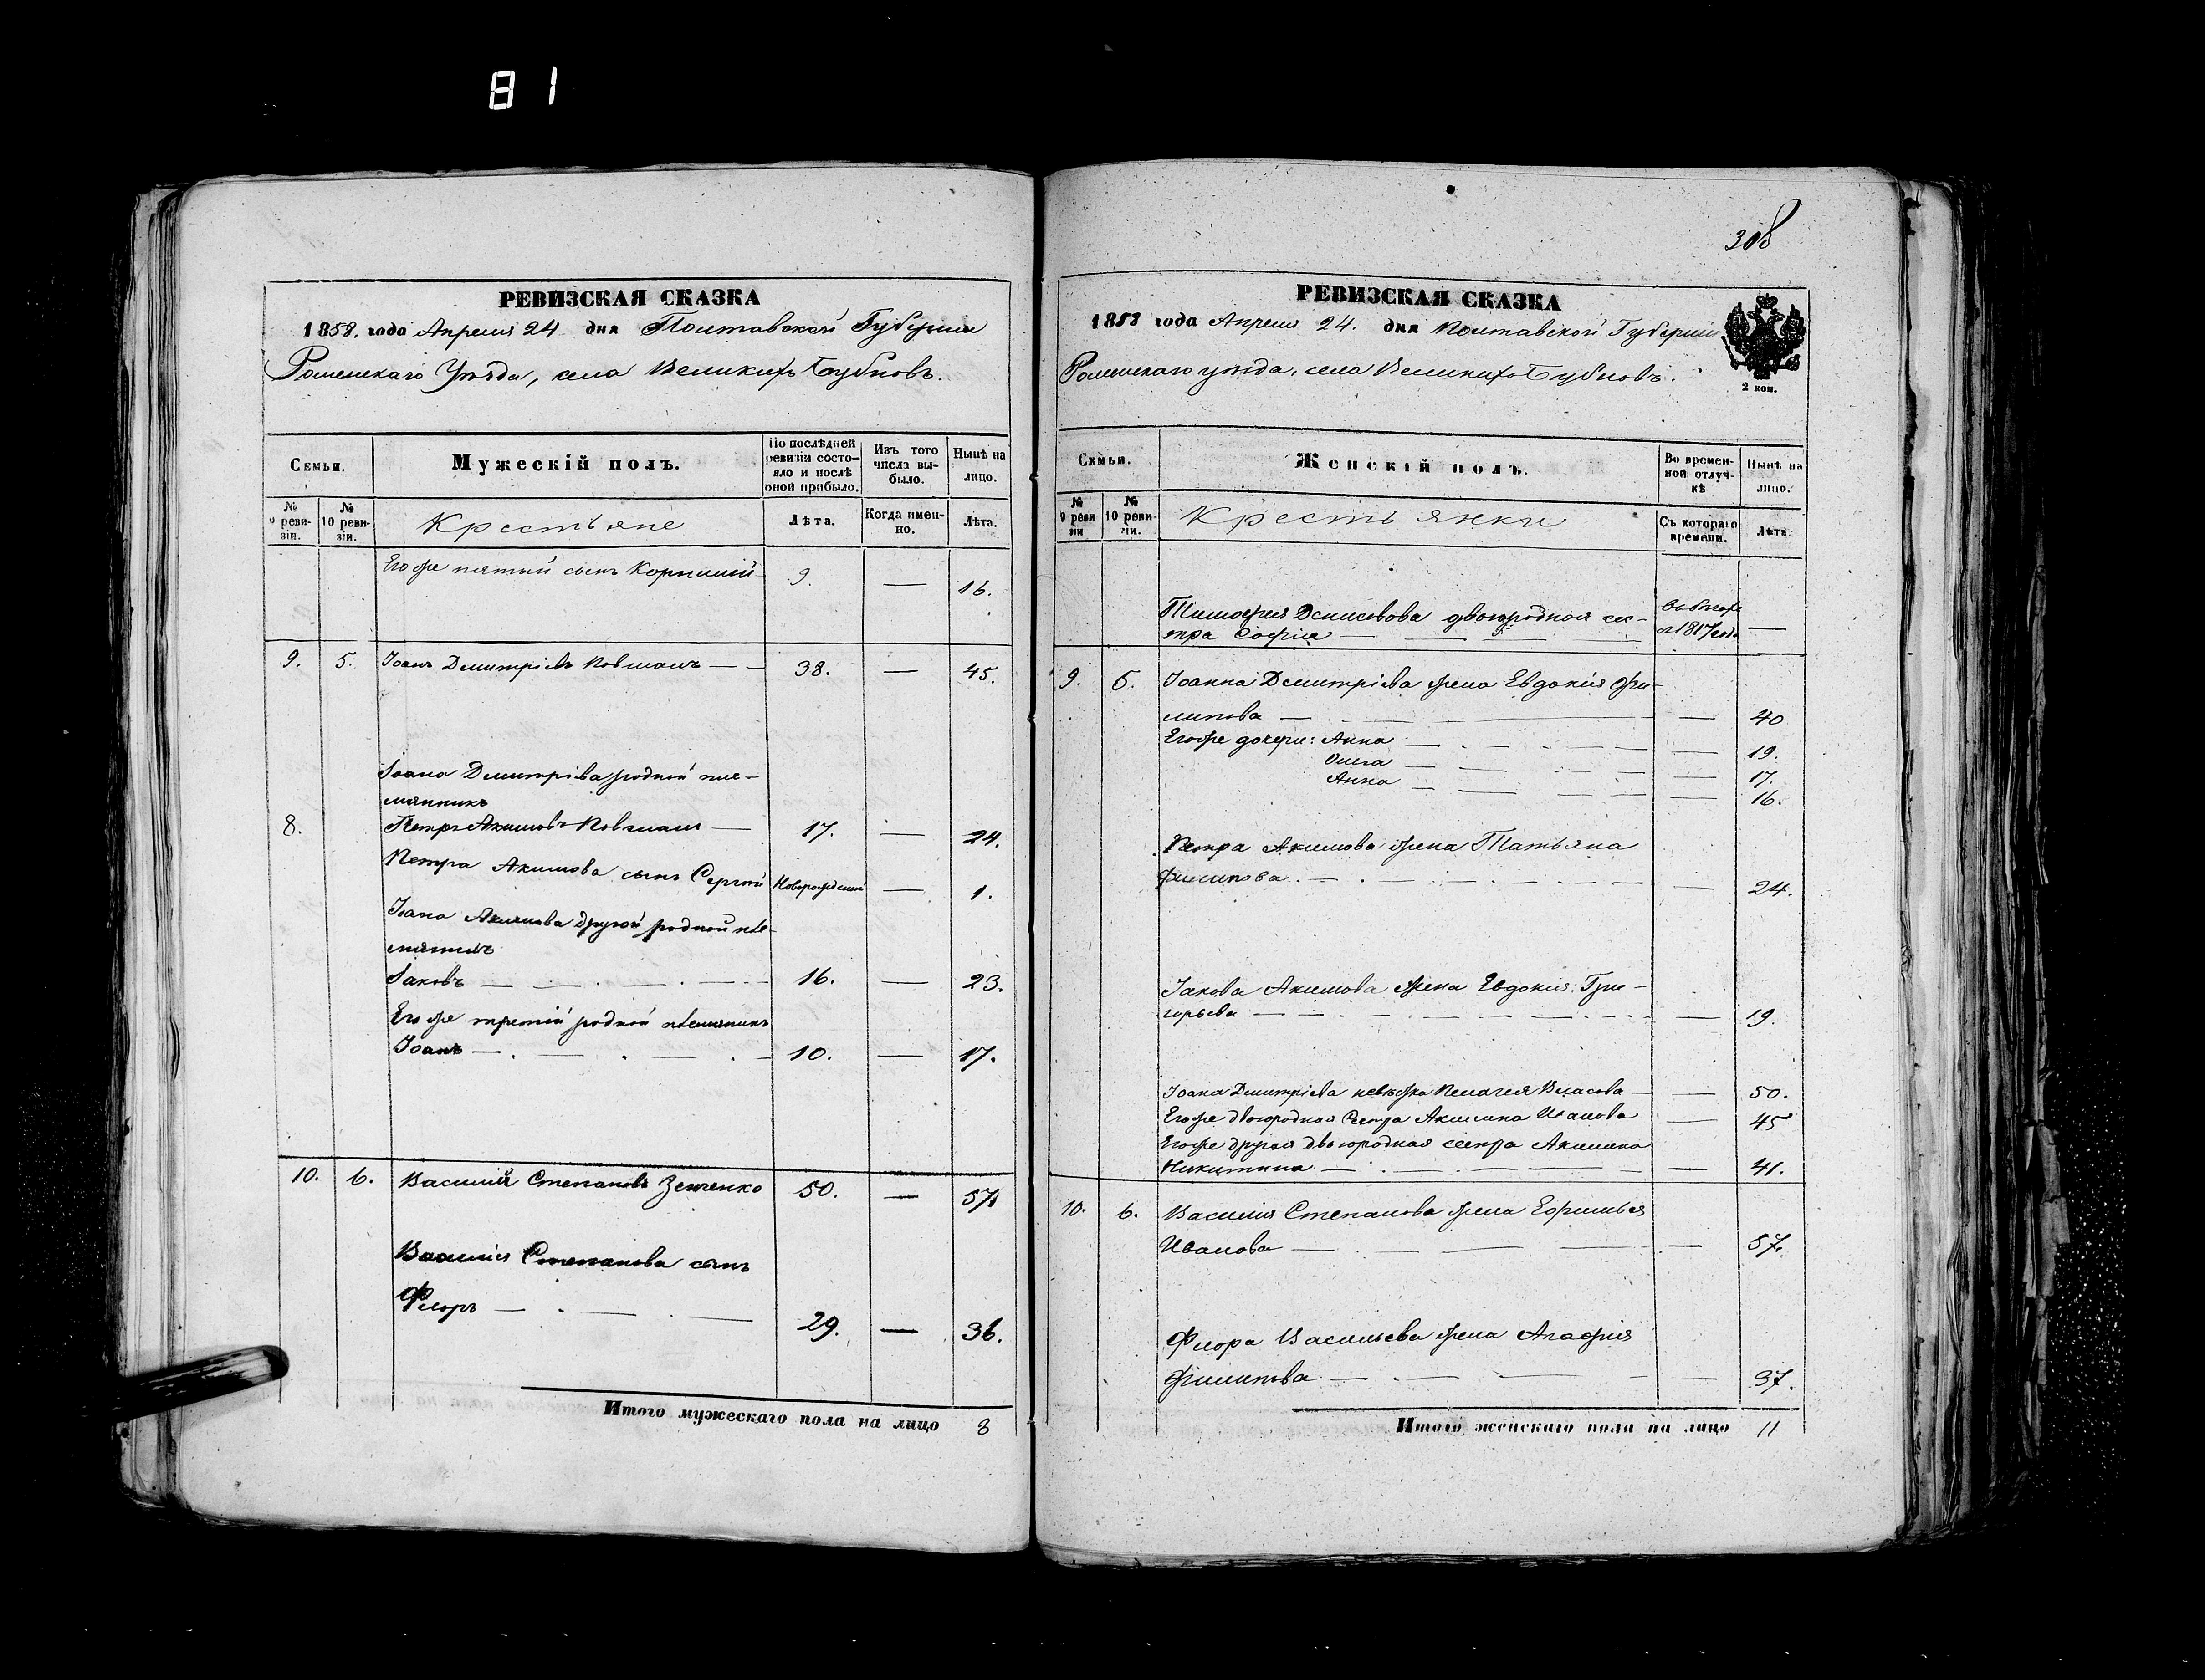 81
РЕВИЗСКАЯ СКАЗКА
1858. года Апреля 24 дня Полтавской Губерніи
Роменскаго Уѣзда, села Великихъ Бубновъ.
Семьи.
Мужескій полъ.
По послѣдней ревизіи состояло и послѣ оной прибыло.
Изъ того числа выбыло.
Нынѣ на лицо.
№ 9 ревизіи.
№ 10 ревизіи.
Крестьяне
Лѣта.
Когда именно.
Лѣта.
Его же пятый сынъ Корнилій 9. — 16.
9. 5. Іоанъ Дмитріевъ Ковшанъ — — 38. — 45.
Іоана Дмитріева родной пле-
мянникъ
8. Петръ Акимовъ Ковшанъ — 17. — 24.
Петра Акимова сынъ Сергей Новорожденный — 1.
Іоана Акимова другой родной пле-
мянникъ
Іаковъ — — — 16. — 23.
Его же третій родной племянникъ
Іоанъ — — — 10. — 17.
10. 6. Василій Степановъ Зенченко 50. — 57.
Василія Степанова сынъ
Флоръ — — — 29. — 36.
Итого мужескаго пола на лицо 8
308
РЕВИЗСКАЯ СКАЗКА
1858 года Апреля 24. дня Полтавской Губерніи
Роменскаго уѣзда, села Великихъ Бубновъ.
2 коп.
Семьи.
Женскій полъ.
Во временной отлучкѣ
Нынѣ на лицо.
№ 9 ревизіи
№ 10 ревизіи.
Крестьянки
Съ котораго времени.
Лѣта.
Тимофея Денисовова двоюродная сес-
тра Софія — — — 1817 года —
9. 5. Іоанна Дмитріева жена Евдокія Фи-
липова — — — 40
Его же дочери: Анна — — 19.
Олга — — 17.
Анна — — 16.
Петра Акимова жена Татьяна
Филипова. — — — 24.
Іакова Акимова жена Евдокія Гри-
горьева — — — 19.
Іоана Дмитріева невѣстка Пелагея Власова — — 50.
Его же двоюродная Сестра Акилина Иванова — 45
Его же другая двоюродная сестра Акилина
Никитина — — — 41.
10. 6. Василія Степанова жена Ефимья
Иванова — — — 57.
Флора Васильева жена Агафія
Филипова — — — 37.
Итого женскаго пола на лицо 11